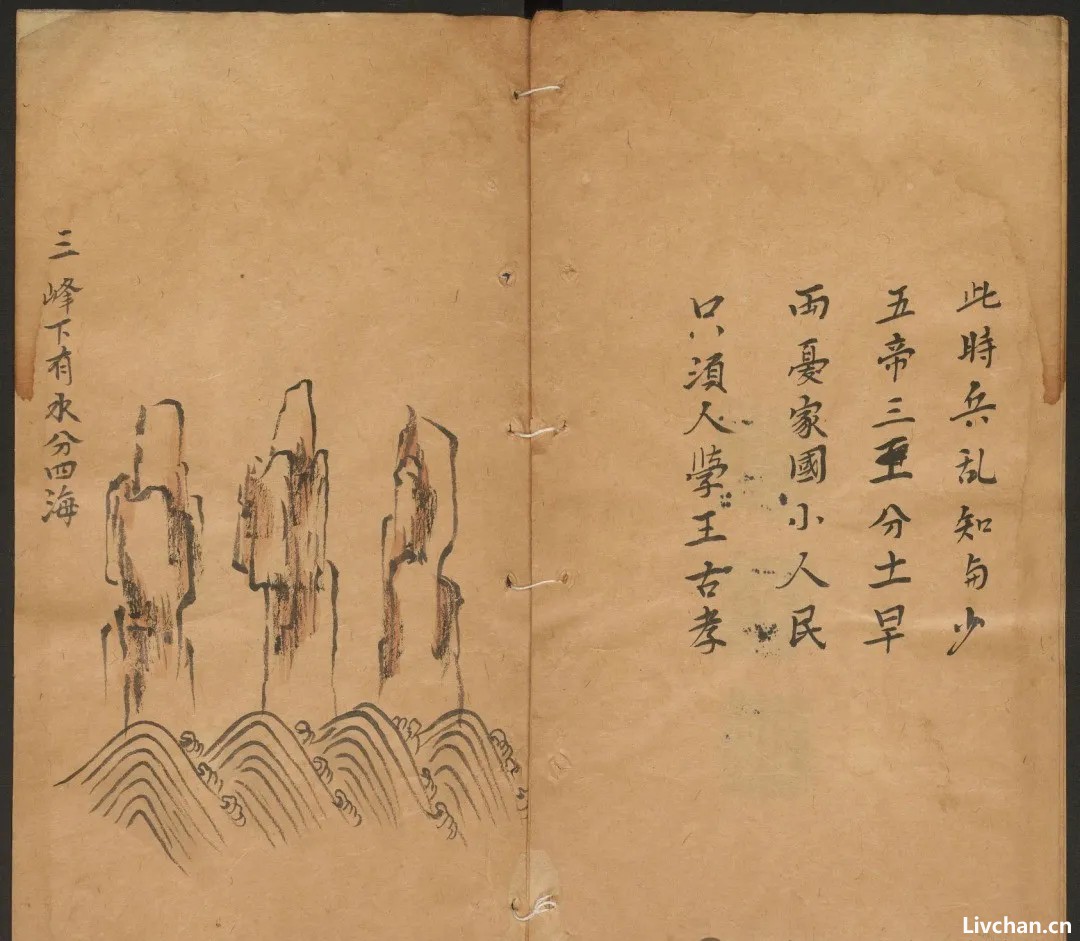 此時兵乱知多少
五帝三王分土旱
而憂家國小人民
只須人學王古孝
三峰下有水分四海
Livchan.cn